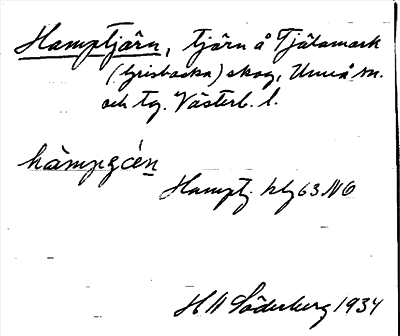 Hamptjärn, tjärn å Tjälamark
(Grisbacka) skog, Umeå sn.
och tg. Västerb. l.
hàmpɀcén
Hamptj. hlj 63 NO
H H Söderberg 1934